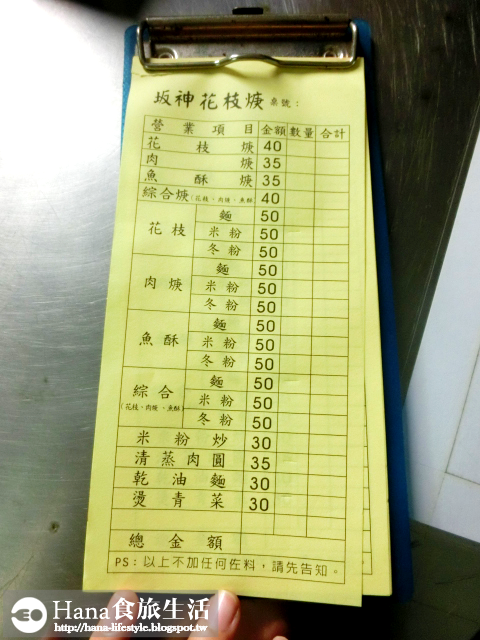 坂神花枝焿 桌號：
營業項目 金額 數量 合計
花枝焿 40
肉焿 35
魚酥焿 35
綜合焿(花枝、肉焿、魚酥) 40
花枝 麵 50
米粉 50
冬粉 50
肉焿 麵 50
米粉 50
冬粉 50
魚酥 麵 50
米粉 50
冬粉 50
綜合(花枝、肉焿、魚酥) 麵 50
米粉 50
冬粉 50
米粉炒 30
清蒸肉圓 35
乾油麵 30
燙青菜 30
總金額
PS：以上不加任何佐料，請先告知。
Hana食旅生活
http://hana-lifestyle.blogspot.tw